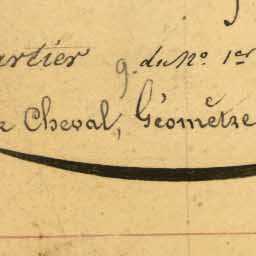 artier g. du N.º 1er
Cheval, Géomètre